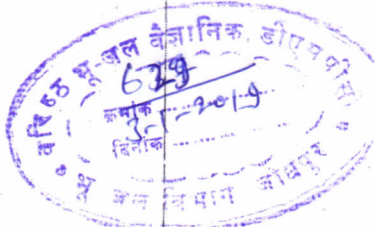 वरिष्ठ भू-जल वैज्ञानिक, डीएमपीसी
639
क्रमांक
3-1-2019
दिनांक
भू जल विभाग जोधपुर